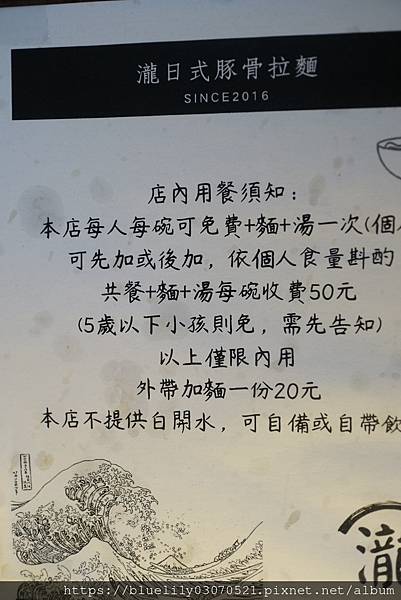 瀧日式豚骨拉麵
SINCE2016
店內用餐須知：
本店每人每碗可免費+麵+湯一次(個
可先加或後加，依個人食量斟酌
共餐+麵+湯每碗收費50元
(5歲以下小孩則免，需先告知)
以上僅限內用
外帶加麵一份20元
本店不提供白開水，可自備或自帶飲
瀧
https://bluelily03070521.pixnet.net/album